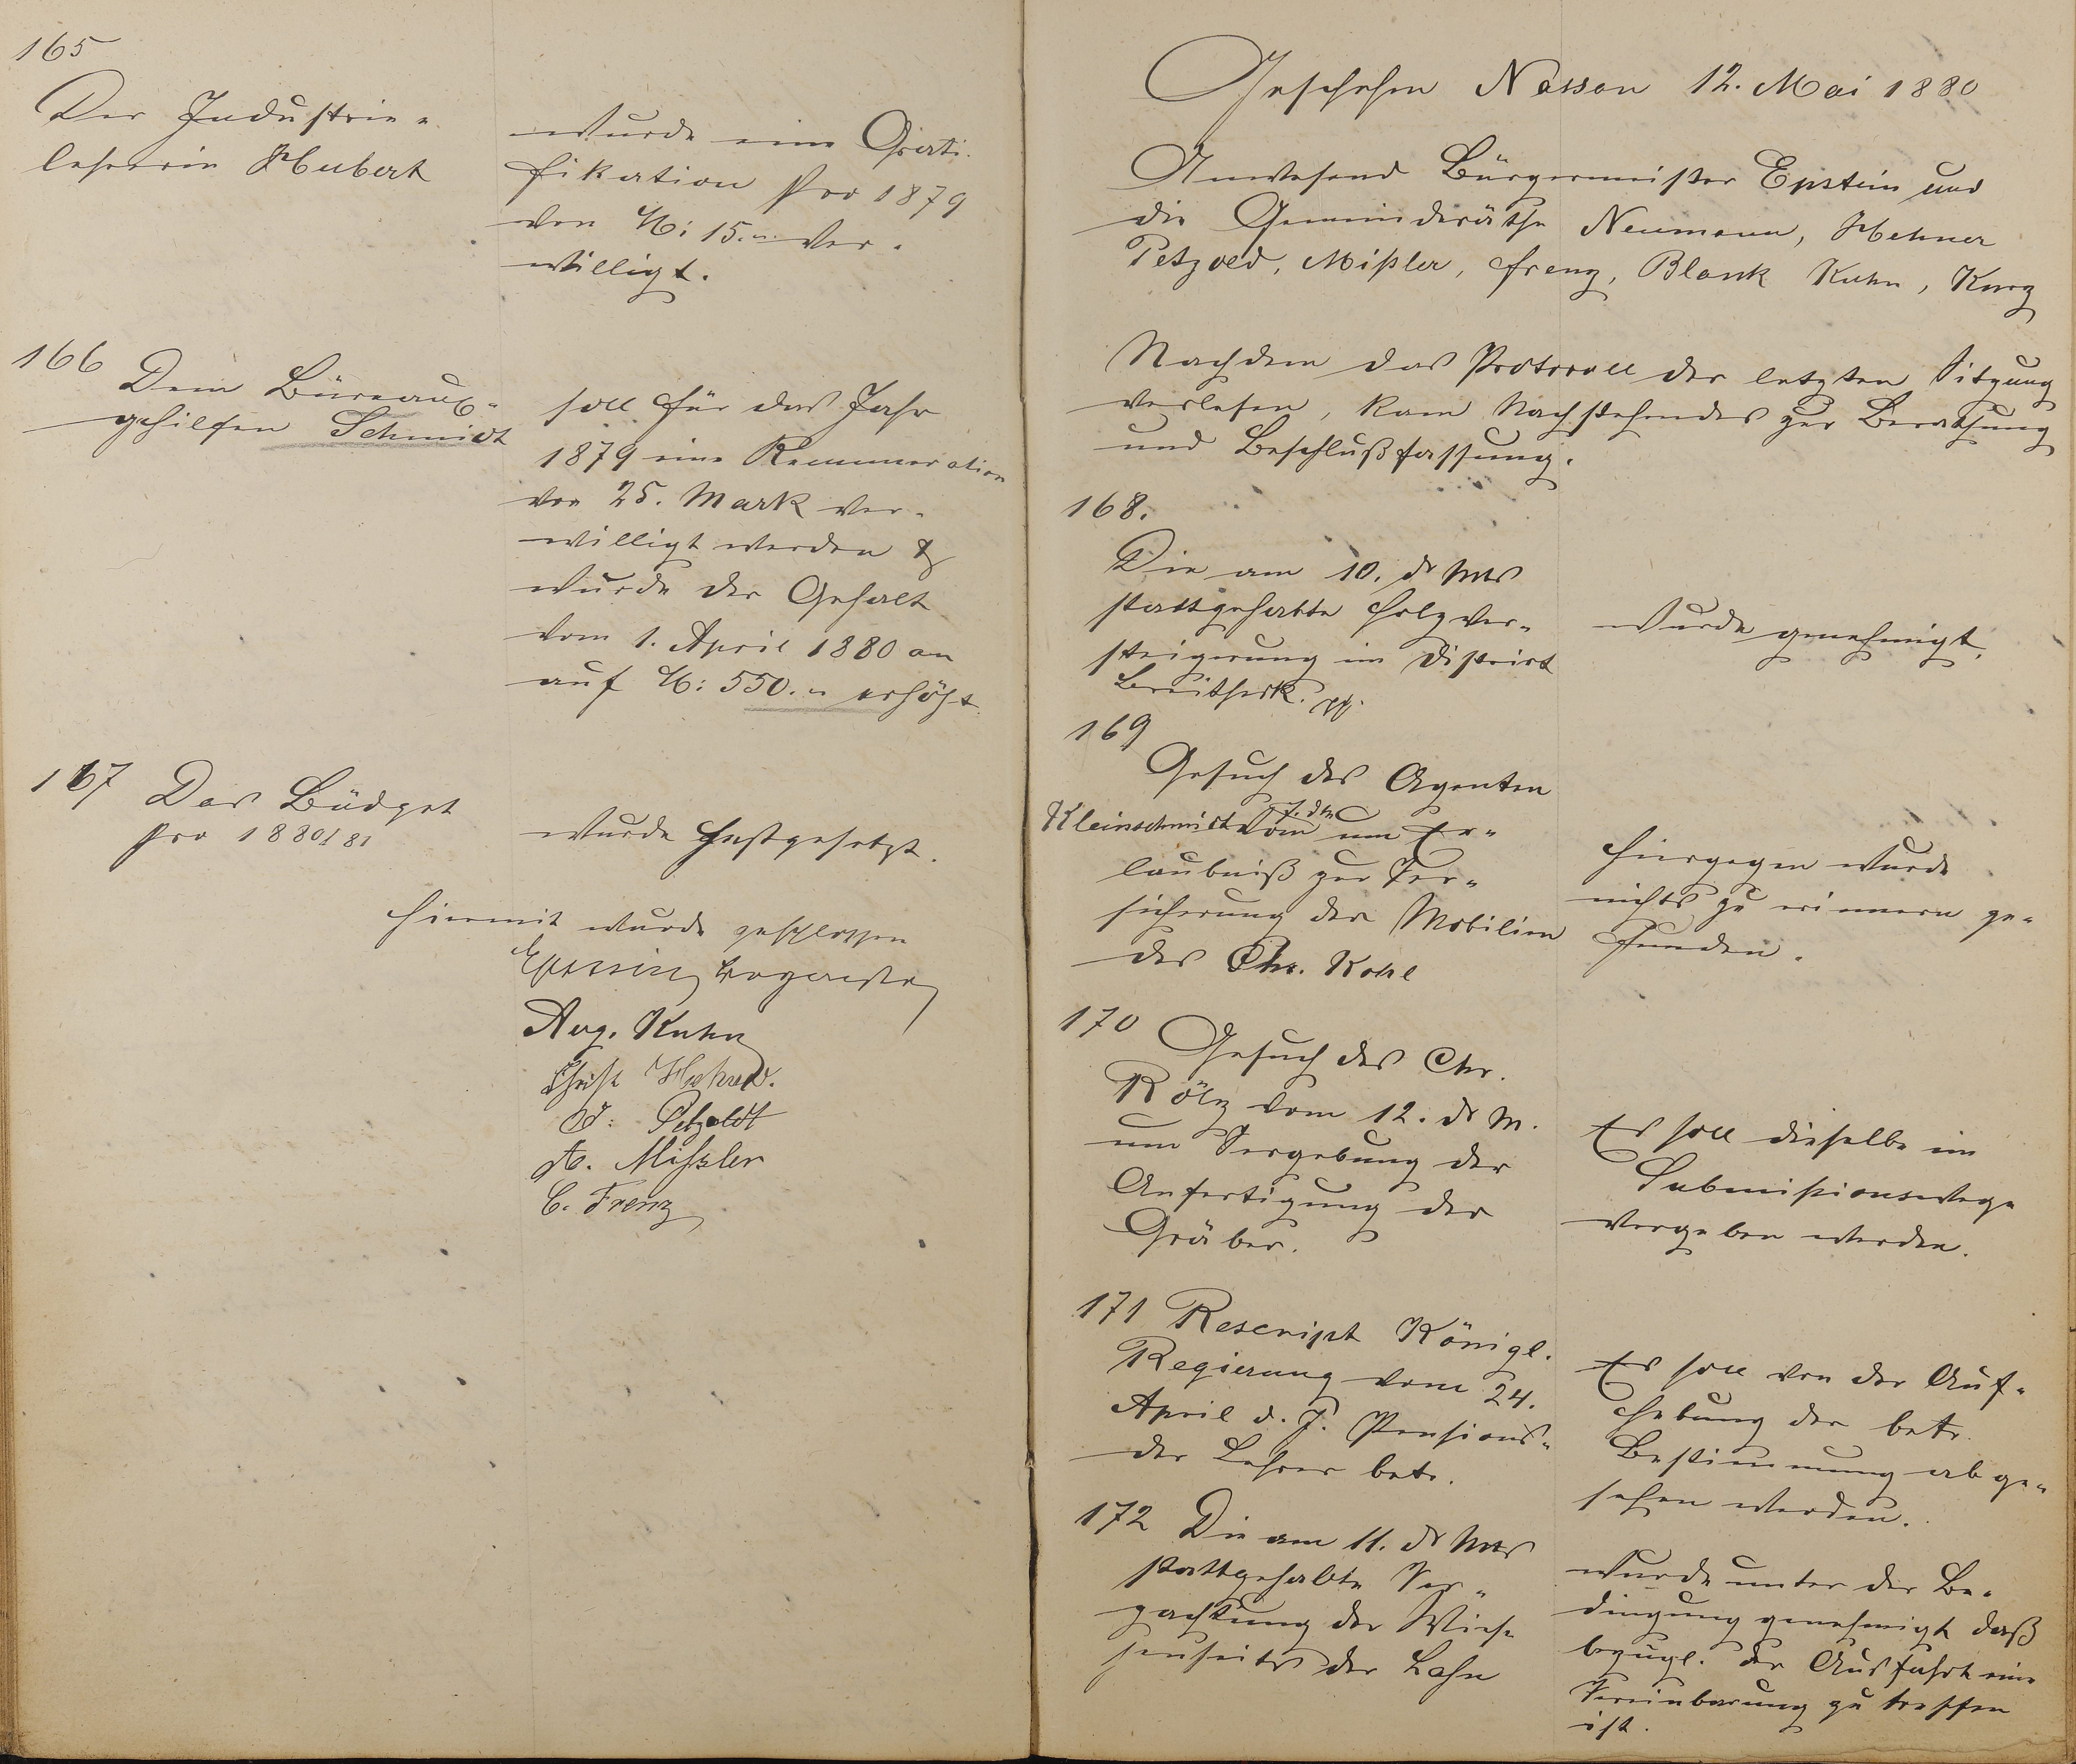 165
Der Industrie-
lehrerin Hubert
wurde eine Grati-
fikation pro 1879
von M: 15.– ver-
willigt.
166 Dem Büreau-
gehilfen Schmidt
soll für das Jahr
1879 eine Remuneration
von 25. Mark ver-
willigt werden &
wurde der Gehalt
vom 1. April 1880 an
auf M: 550.– erhöht.
167 Das Büdget
pro 1880/81
wurde festgesetzt.
Hiermit wurde geschlossen
Epstein, Bürgermstr
Aug. Kuhn
Christ Hehner.
Petzoldt
A. Mißler
C. Frenz
Geschehen Nassau 12. Mai 1880
Anwesend Bürgermeister Epstein und
die Gemeinderäthe Neumann, Hehner
Petzold, Mißler, Frenz, Blank Kuhn, Kurz
Nachdem das Protocoll der letzten Sitzung
verlesen, kam Nachstehendes zur Berathung
und Beschlußfassung.
168.
Die am 10. ds Mts
stattgehabte Holzver-
steigerung im District
wurde genehmigt.
169
Gesuch des Agenten
Kleinschmidt vom 7. ds um Er-
laubniß zur Ver-
sicherung der Mobilien
des Chr. Kohl
Hiergegen wurde
nichts zu erinnern ge-
funden.
170 Gesuch des Chr.
Rölz vom 12. ds M.
um Vergebung der
Anfertigung der
Gräber.
Es soll dieselbe im
Submissionswege
vergeben werden.
171 Rescript Königl.
Regierung vom 24.
April d. J. Pensions-
der Lehrer betr.
Es soll von der Auf-
hebung der betr.
Bestimmung abge-
sehen werden.
172 Die am 11. ds Mts
stattgehabte Ver-
pachtung der Wiese
jenseits der Lahn
wurde unter der Be-
dingung genehmigt daß
bezügl. der Ausfahrt eine
Vereinbarung zu treffen
ist.